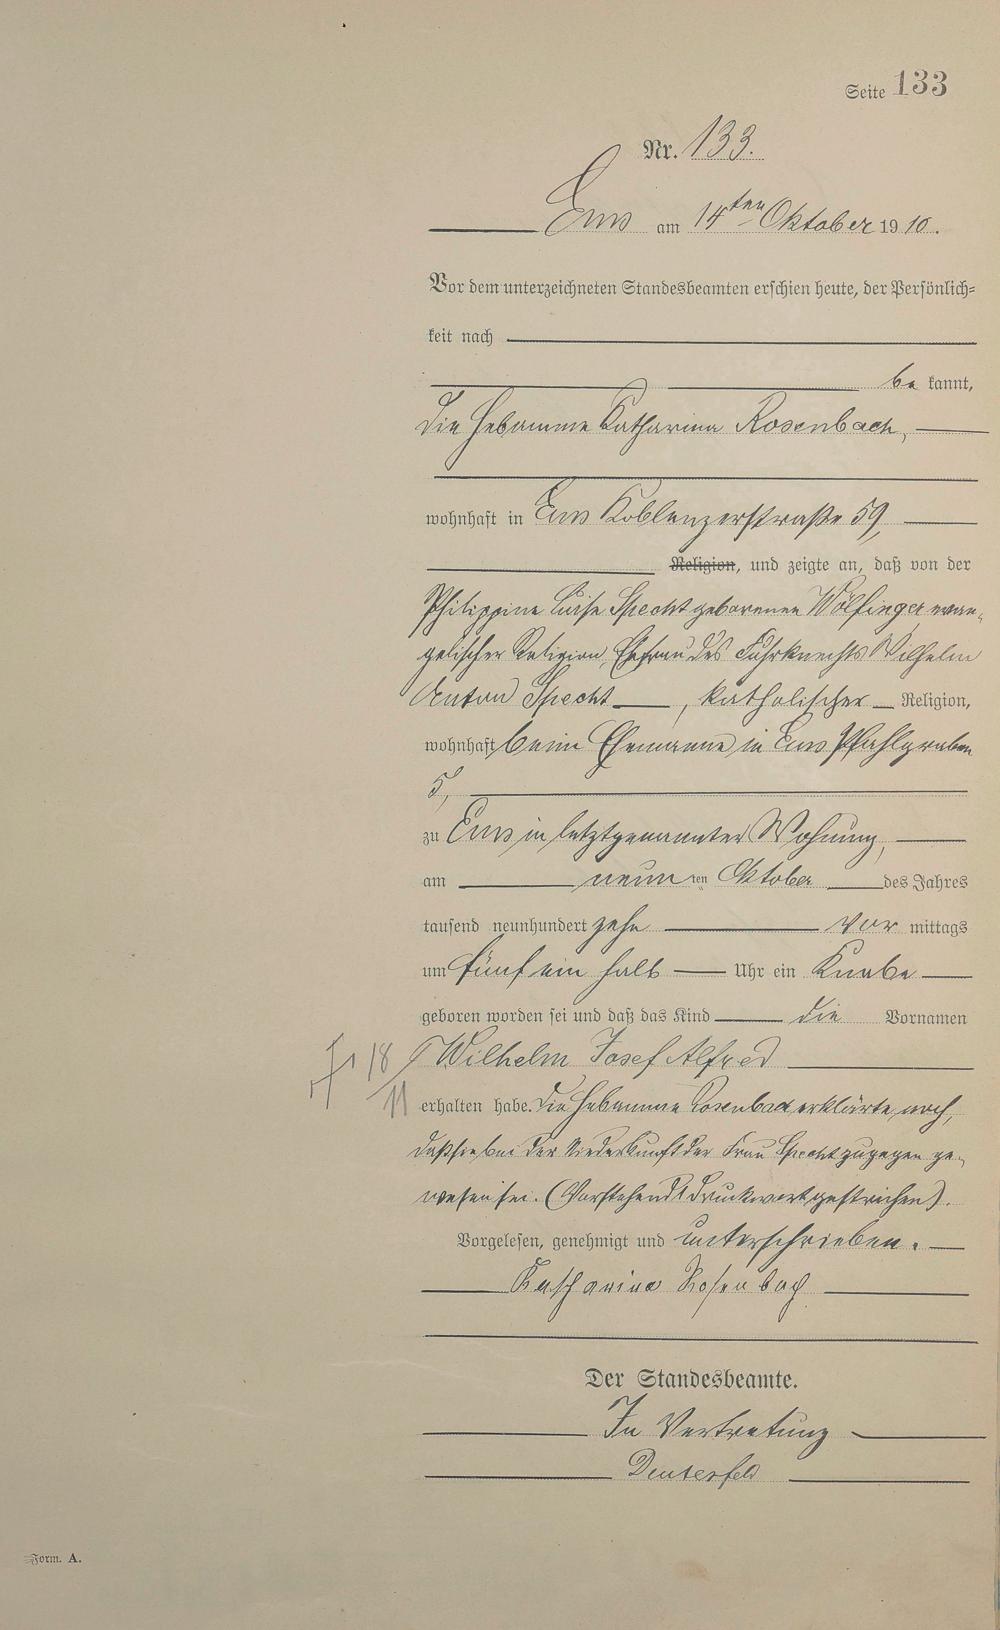 Seite 133
Nr. 133.
Ems am 14ten Oktober 1910.
Vor dem unterzeichneten Standesbeamten erschien heute, der Persönlich-
keit nach
be kannt,
die Hebamme Katharina Rosenbach,
wohnhaft in Ems Koblenzerstraße 59,
Religion, und zeigte an, daß von der
Philippine Luise Specht geborenen Wölfinger evan-
gelischer Religion, Ehefrau des Fuhrknechts Wilhelm
Anton Specht, katholischer Religion,
wohnhaft beim Ehemanne in Ems Pfahlgraben
5,
zu Ems in letztgenannter Wohnung,
am neun ten Oktober des Jahres
tausend neunhundert zehn vor mittags
um fünf ein halb Uhr ein Knabe
geboren worden sei und daß das Kind die Vornamen
Wilhelm Josef Alfred
18
11
erhalten habe. Die Hebamme Rosenbach erklärte noch,
daß sie bei der Niederkunft der Frau Specht zugegen ge-
wesen sei. (Vorstehend 1 Druckwort gestrichen).
Vorgelesen, genehmigt und unterschrieben.
Katharina Rosenbach
Der Standesbeamte.
In Vertretung
Form. A.